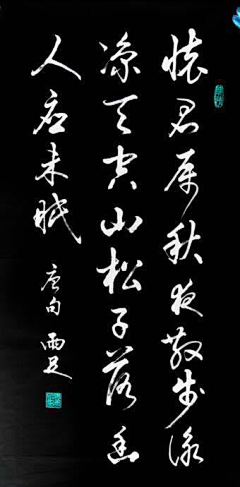 懷君属秋夜散步詠
凉天空山松子落幽
人应未眠
唐句